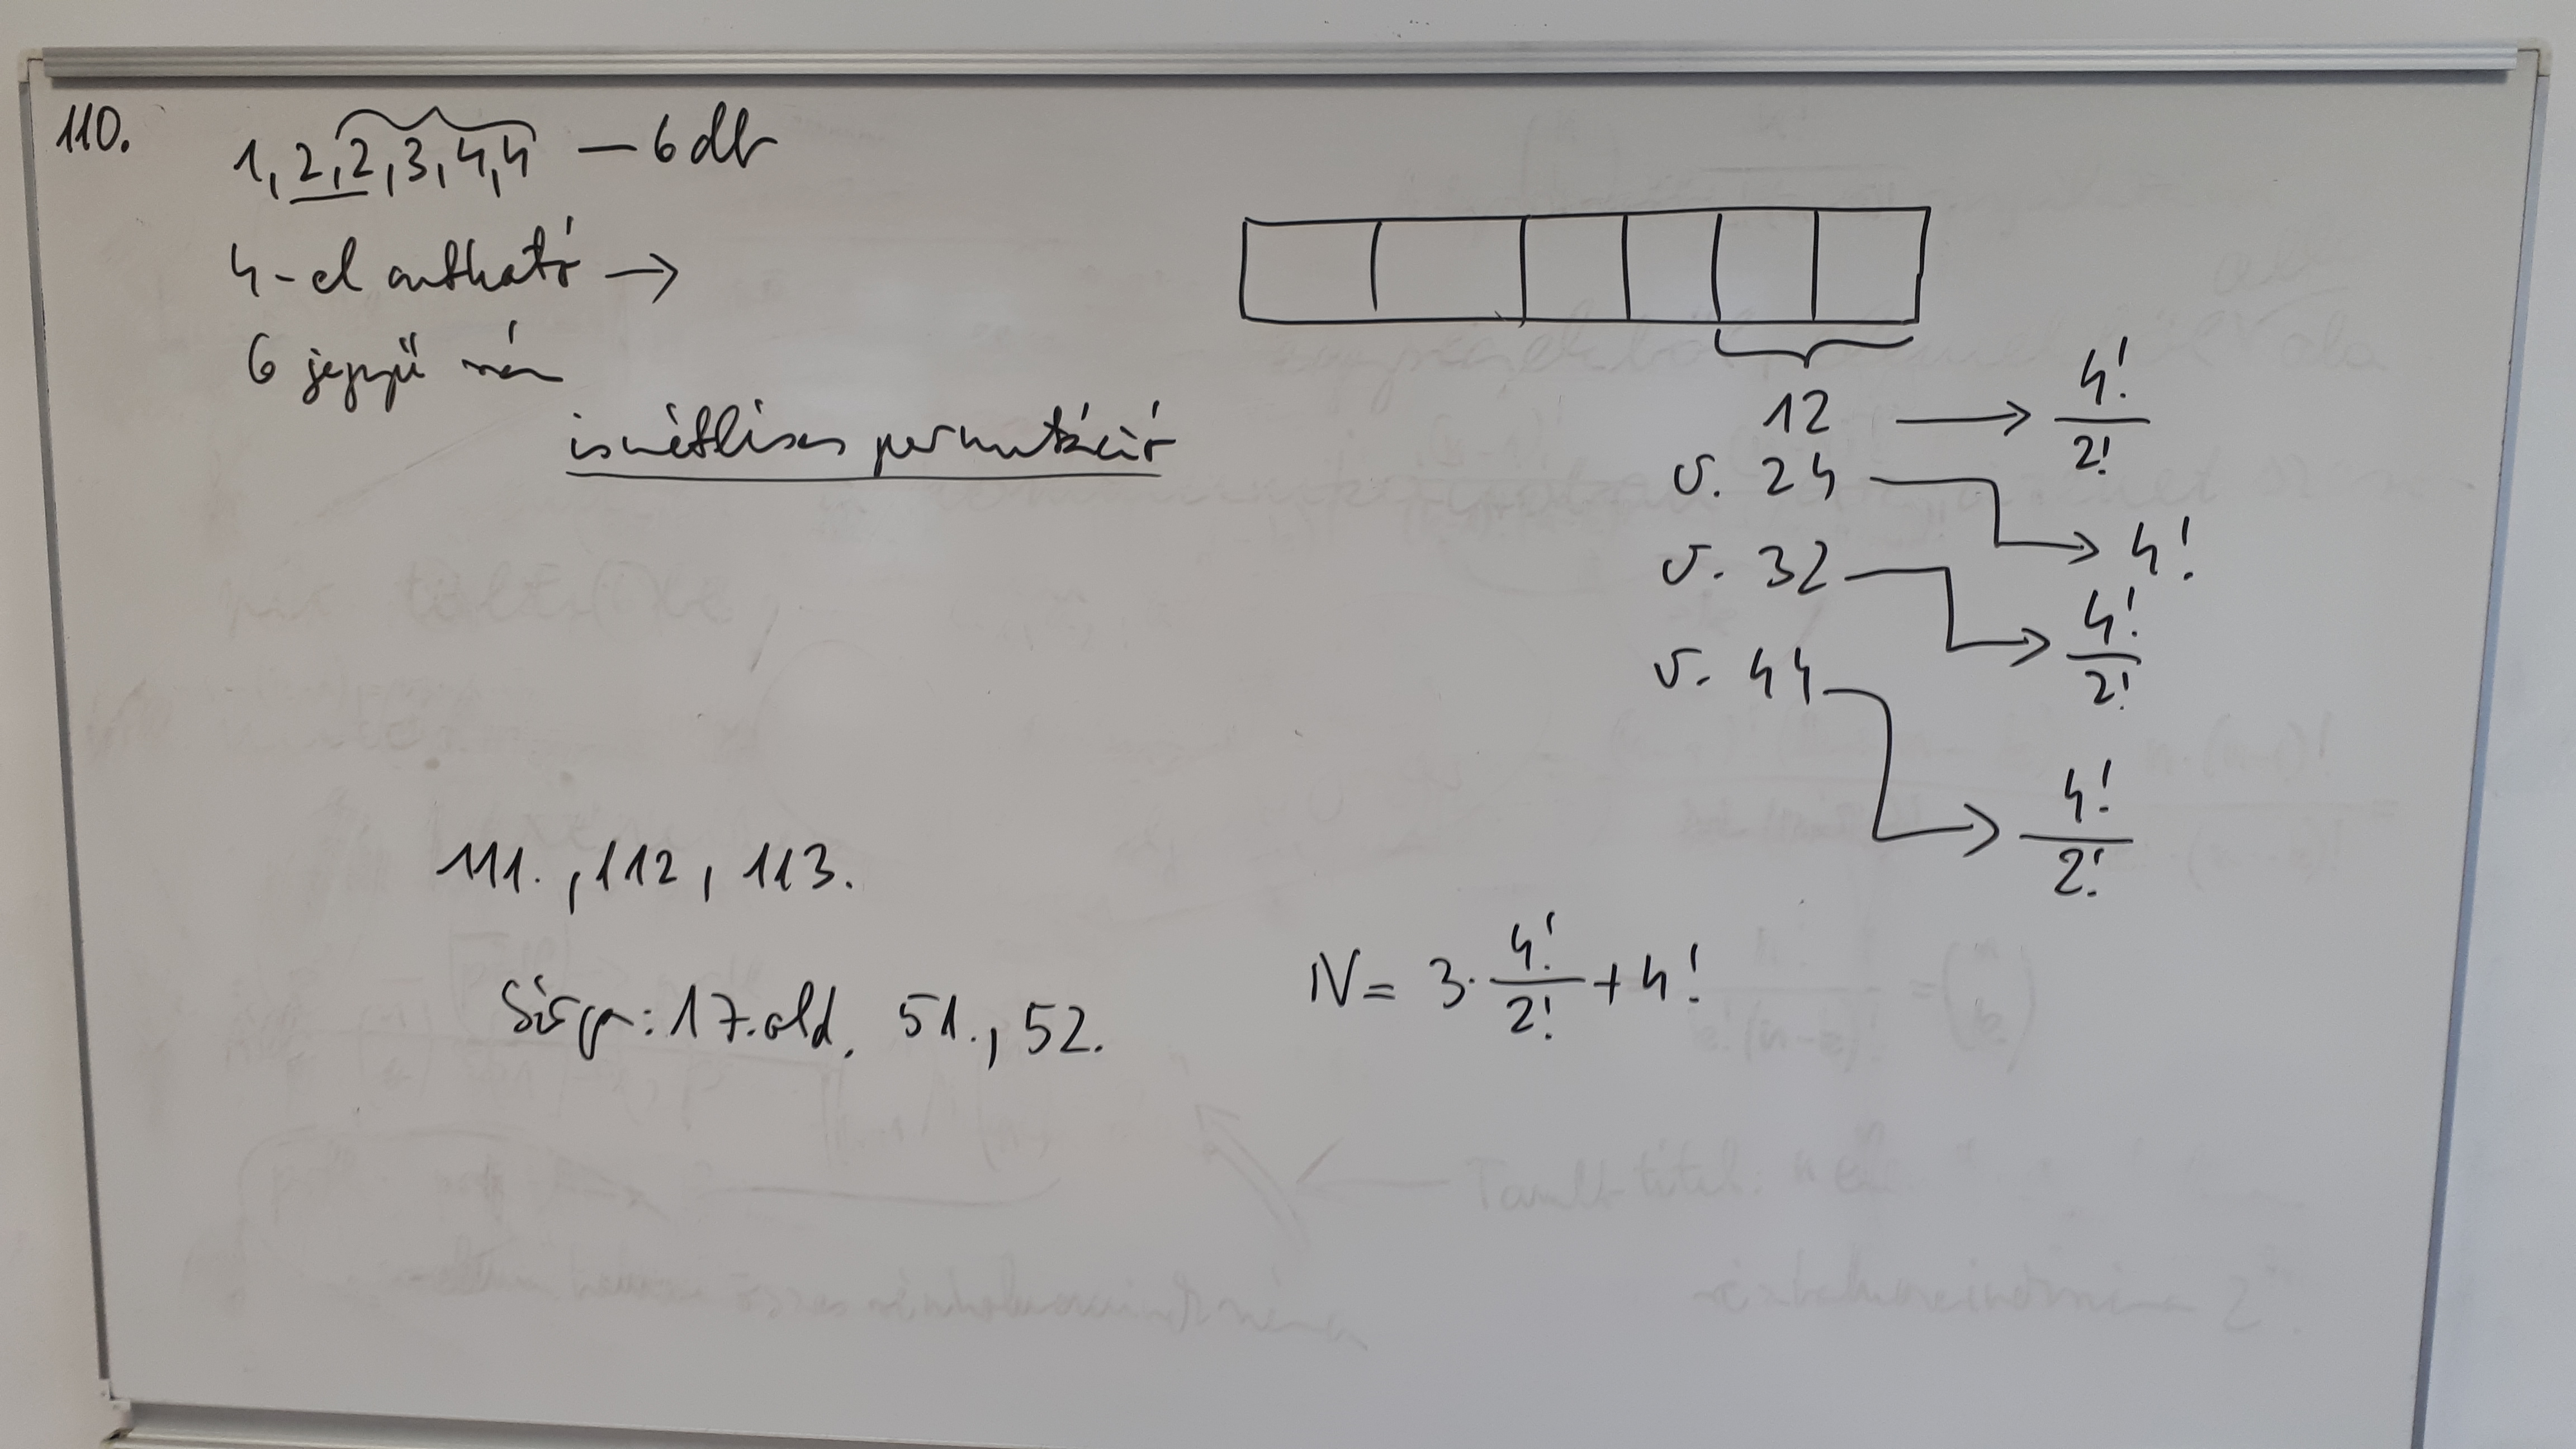 110.
1, 2, 2, 3, 4, 4 — 6 db
4-el osztható →
6 jegyű szám
ismétléses permutáció
12 → 4!/2!
v. 24 → 4!
v. 32 → 4!/2!
v. 44 → 4!/2!
N = 3· 4!/2! + 4!
111., 112, 113.
Sárga: 17. old. 51., 52.